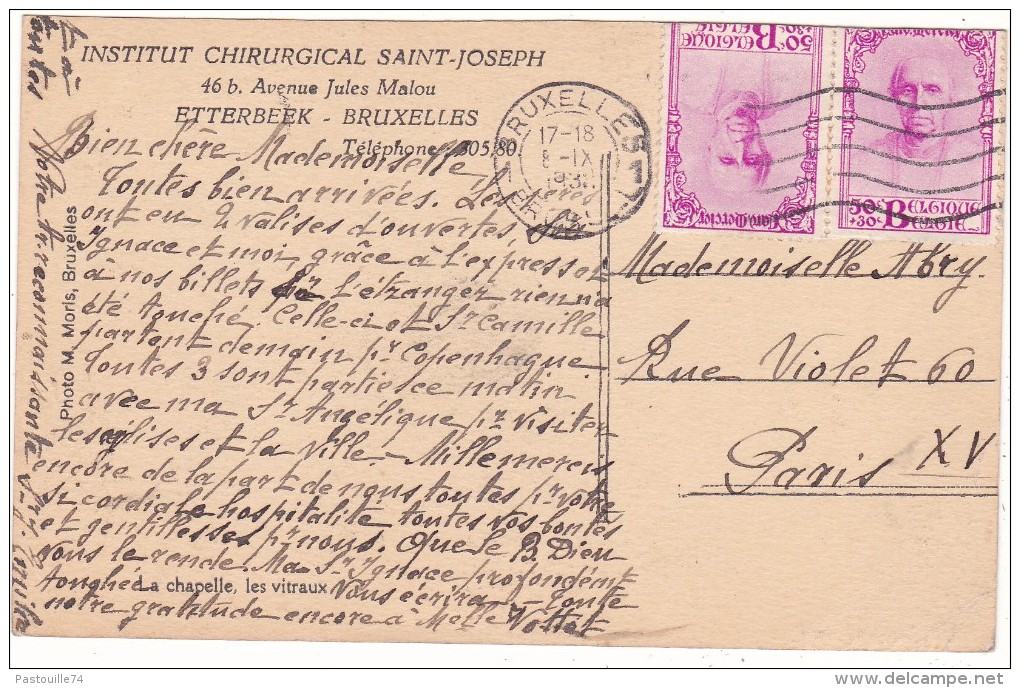 INSTITUT CHIRURGICAL SAINT-JOSEPH
46 b. Avenue Jules Malou
ETTERBEEK - BRUXELLES
Téléphone 305,80
BRUXELLES 1
17-18
8-IX
50c BELGIQUE
+30c BELGIË
Card. Mercier
50c BELGIQUE
+30c BELGIË
Bien chère Mademoiselle,
Toutes bien arrivées. Les
ont eu 2 valises d'ouvertes,
Ignace et moi, grâce à l'express et
à nos billets pr l'étranger rien n'a
été touché. Celle-ci et Sr Camille
partent demain pr Copenhague
Toutes 3 sont parties ce matin
avec ma Sr Angélique pr visiter
les églises et la ville. - Mille mercis
encore de la part de nous toutes pr votre
si cordiale hospitalité toutes vos bontés
et gentillesses pr nous. Que le B. Dieu
vous le rende. Ma Sr Ignace profondémt
touchée vous écrira - Toute
notre gratitude encore à Melle Vottet
Votre tr. reconnaissante
Mademoiselle Abry
Rue Violet 60
Paris XV
Photo M. Moris, Bruxelles
La chapelle, les vitraux
Pastouille74
delcampe.net